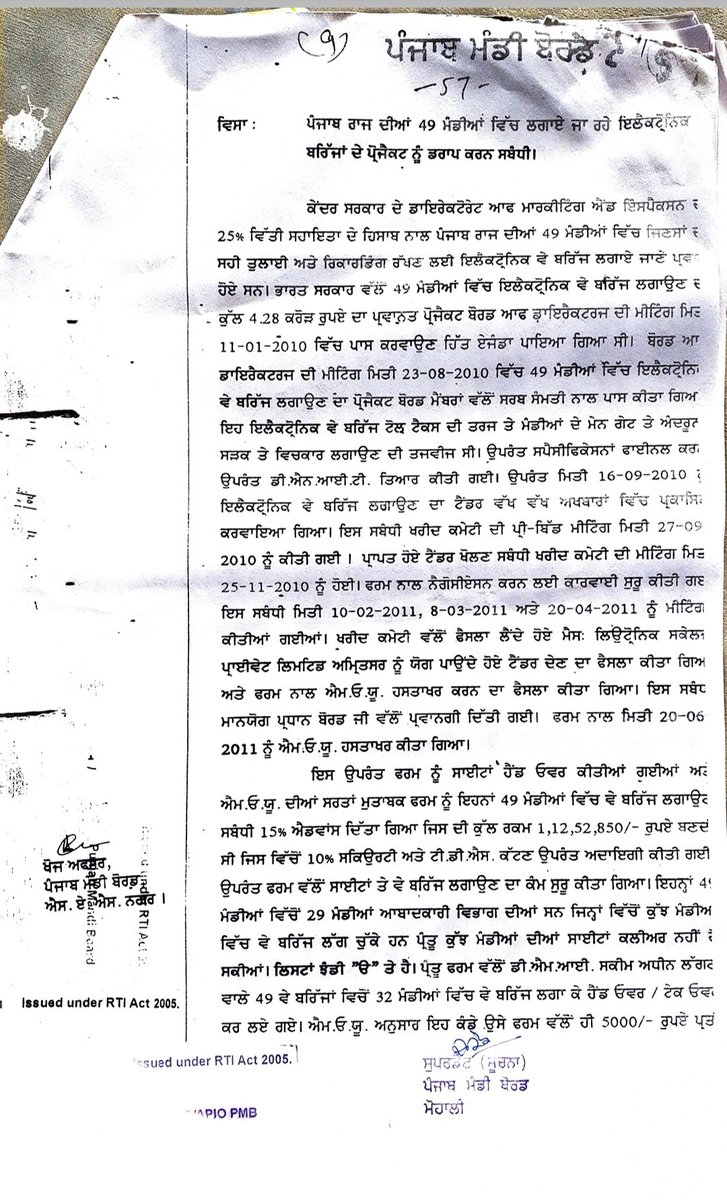 (9) ਪੰਜਾਬ ਮੰਡੀ ਬੋਰਡ
-57-
ਵਿਸਾ : ਪੰਜਾਬ ਰਾਜ ਦੀਆਂ 49 ਮੰਡੀਆਂ ਵਿੱਚ ਲਗਾਏ ਜਾ ਰਹੇ ਇਲੈਕਟ੍ਰੋਨਿਕ
ਬਰਿੱਜਾਂ ਦੇ ਪ੍ਰੋਜੈਕਟ ਨੂੰ ਡਰਾਪ ਕਰਨ ਸਬੰਧੀ।
ਕੇਂਦਰ ਸਰਕਾਰ ਦੇ ਡਾਇਰੈਕਟੋਰੇਟ ਆਫ ਮਾਰਕੀਟਿੰਗ ਐਂਡ ਇੰਸਪੈਕਸਨ ਦ
25% ਵਿੱਤੀ ਸਹਾਇਤਾ ਦੇ ਹਿਸਾਬ ਨਾਲ ਪੰਜਾਬ ਰਾਜ ਦੀਆਂ 49 ਮੰਡੀਆਂ ਵਿੱਚ ਜਿਣਸਾਂ ਦ
ਸਹੀ ਤੁਲਾਈ ਅਤੇ ਰਿਕਾਰਡਿੰਗ ਰੱਖਣ ਲਈ ਇਲੈਕਟ੍ਰੋਨਿਕ ਵੇ ਬਰਿੱਜ ਲਗਾਏ ਜਾਣੇ ਪ੍ਰਵਾ
ਹੋਏ ਸਨ। ਭਾਰਤ ਸਰਕਾਰ ਵੱਲੋਂ 49 ਮੰਡੀਆਂ ਵਿੱਚ ਇਲੈਕਟ੍ਰੋਨਿਕ ਵੇ ਬਰਿੱਜ ਲਗਾਉਣ ਦ
ਕੁੱਲ 4.28 ਕਰੋੜ ਰੁਪਏ ਦਾ ਪ੍ਰਵਾਨਤ ਪ੍ਰੋਜੈਕਟ ਬੋਰਡ ਆਫ ਡਾਇਰੈਕਟਰਜ ਦੀ ਮੀਟਿੰਗ ਮਿਤ
11-01-2010 ਵਿੱਚ ਪਾਸ ਕਰਵਾਉਣ ਹਿੱਤ ਏਜੰਡਾ ਪਾਇਆ ਗਿਆ ਸੀ। ਬੋਰਡ ਆ
ਡਾਇਰੈਕਟਰਜ ਦੀ ਮੀਟਿੰਗ ਮਿਤੀ 23-08-2010 ਵਿੱਚ 49 ਮੰਡੀਆਂ ਵਿੱਚ ਇਲੈਕਟ੍ਰੋਨਿ
ਵੇ ਬਰਿੱਜ ਲਗਾਉਣ ਦਾ ਪ੍ਰੋਜੈਕਟ ਬੋਰਡ ਮੈਂਬਰਾਂ ਵੱਲੋਂ ਸਰਬ ਸੰਮਤੀ ਨਾਲ ਪਾਸ ਕੀਤਾ ਗਿਆ
ਇਹ ਇਲੈਕਟ੍ਰੋਨਿਕ ਵੇ ਬਰਿੱਜ ਟੋਲ ਟੈਕਸ ਦੀ ਤਰਜ ਤੇ ਮੰਡੀਆਂ ਦੇ ਮੇਨ ਗੇਟ ਤੇ ਅੰਦਰੂਨ
ਸੜਕ ਤੇ ਵਿਚਕਾਰ ਲਗਾਉਣ ਦੀ ਤਜਵੀਜ ਸੀ। ਉਪਰੰਤ ਸਪੈਸੀਫਿਕੇਸਨਾਂ ਫਾਈਨਲ ਕਰ
ਉਪਰੰਤ ਡੀ.ਐਨ.ਆਈ.ਟੀ. ਤਿਆਰ ਕੀਤੀ ਗਈ। ਉਪਰੰਤ ਮਿਤੀ 16-09-2010
ਇਲੈਕਟ੍ਰੋਨਿਕ ਵੇ ਬਰਿੱਜ ਲਗਾਉਣ ਦਾ ਟੈਂਡਰ ਵੱਖ ਵੱਖ ਅਖਬਾਰਾਂ ਵਿੱਚ ਪ੍ਰਕਾਸਿ
ਕਰਵਾਇਆ ਗਿਆ। ਇਸ ਸਬੰਧੀ ਖਰੀਦ ਕਮੇਟੀ ਦੀ ਪ੍ਰੀ-ਬਿੱਡ ਮੀਟਿੰਗ ਮਿਤੀ 27-09
2010 ਨੂੰ ਕੀਤੀ ਗਈ । ਪ੍ਰਾਪਤ ਹੋਏ ਟੈਂਡਰ ਖੋਲਣ ਸਬੰਧੀ ਖਰੀਦ ਕਮੇਟੀ ਦੀ ਮੀਟਿੰਗ ਮਿਤ
25-11-2010 ਨੂੰ ਹੋਈ। ਫਰਮ ਨਾਲ ਨੈਗੋਸੀਏਸਨ ਕਰਨ ਲਈ ਕਾਰਵਾਈ ਸੁਰੂ ਕੀਤੀ ਗਈ
ਇਸ ਸਬੰਧੀ ਮਿਤੀ 10-02-2011, 8-03-2011 ਅਤੇ 20-04-2011 ਨੂੰ ਮੀਟਿੰਗ
ਕੀਤੀਆਂ ਗਈਆਂ। ਖਰੀਦ ਕਮੇਟੀ ਵੱਲੋਂ ਫੈਸਲਾ ਲੈਂਦੇ ਹੋਏ ਮੈਸ: ਲਿਊਟ੍ਰੋਨਿਕ ਸਕੇਲਜ
ਪ੍ਰਾਈਵੇਟ ਲਿਮਟਿਡ ਅਮ੍ਰਿਤਸਰ ਨੂੰ ਯੋਗ ਪਾਉਂਦੇ ਹੋਏ ਟੈਂਡਰ ਦੇਣ ਦਾ ਫੈਸਲਾ ਕੀਤਾ ਗਿਆ
ਅਤੇ ਫਰਮ ਨਾਲ ਐਮ.ਓ.ਯੂ. ਹਸਤਾਖਰ ਕਰਨ ਦਾ ਫੈਸਲਾ ਕੀਤਾ ਗਿਆ। ਇਸ ਸਬੰਧ
ਮਾਨਯੋਗ ਪ੍ਰਧਾਨ ਬੋਰਡ ਜੀ ਵੱਲੋਂ ਪ੍ਰਵਾਨਗੀ ਦਿੱਤੀ ਗਈ। ਫਰਮ ਨਾਲ ਮਿਤੀ 20-06
2011 ਨੂੰ ਐਮ.ਓ.ਯੂ. ਹਸਤਾਖਰ ਕੀਤਾ ਗਿਆ।
ਇਸ ਉਪਰੰਤ ਫਰਮ ਨੂੰ ਸਾਈਟਾਂ ਹੈਂਡ ਓਵਰ ਕੀਤੀਆਂ ਗਈਆਂ ਅਤੇ
ਐਮ.ਓ.ਯੂ. ਦੀਆਂ ਸਰਤਾਂ ਮੁਤਾਬਕ ਫਰਮ ਨੂੰ ਇਹਨਾਂ 49 ਮੰਡੀਆਂ ਵਿੱਚ ਵੇ ਬਰਿੱਜ ਲਗਾਉਣ
ਸਬੰਧੀ 15% ਐਡਵਾਂਸ ਦਿੱਤਾ ਗਿਆ ਜਿਸ ਦੀ ਕੁੱਲ ਰਕਮ 1,12,52,850/- ਰੁਪਏ ਬਣਦੀ
ਸੀ ਜਿਸ ਵਿੱਚੋਂ 10% ਸਕਿਉਰਟੀ ਅਤੇ ਟੀ.ਡੀ.ਐਸ. ਕੱਟਣ ਉਪਰੰਤ ਅਦਾਇਗੀ ਕੀਤੀ ਗਈ
ਉਪਰੰਤ ਫਰਮ ਵੱਲੋਂ ਸਾਈਟਾਂ ਤੇ ਵੇ ਬਰਿੱਜ ਲਗਾਉਣ ਦਾ ਕੰਮ ਸੁਰੂ ਕੀਤਾ ਗਿਆ। ਇਹਨ੍ਹਾਂ 49
ਮੰਡੀਆਂ ਵਿੱਚੋਂ 29 ਮੰਡੀਆਂ ਆਬਾਦਕਾਰੀ ਵਿਭਾਗ ਦੀਆਂ ਸਨ ਜਿਨ੍ਹਾਂ ਵਿੱਚੋਂ ਕੁੱਝ ਮੰਡੀਆ
ਵਿੱਚ ਵੇ ਬਰਿੱਜ ਲੱਗ ਚੁੱਕੇ ਹਨ ਪ੍ਰੰਤੂ ਕੁੱਝ ਮੰਡੀਆਂ ਦੀਆਂ ਸਾਈਟਾਂ ਕਲੀਅਰ ਨਹੀਂ ਹੋ
ਸਕੀਆਂ। ਲਿਸਟਾਂ ਝੰਡੀ "ੳ" ਤੇ ਹੈ। ਪ੍ਰੰਤੂ ਫਰਮ ਵੱਲੋਂ ਡੀ.ਐਮ.ਆਈ. ਸਕੀਮ ਅਧੀਨ ਲੱਗਣ
ਵਾਲੇ 49 ਵੇ ਬਰਿੱਜਾਂ ਵਿਚੋਂ 32 ਮੰਡੀਆਂ ਵਿੱਚ ਵੇ ਬਰਿੱਜ ਲਗਾ ਕੇ ਹੈਂਡ ਓਵਰ / ਟੇਕ ਓਵਰ
ਕਰ ਲਏ ਗਏ। ਐਮ.ਓ.ਯੂ. ਅਨੁਸਾਰ ਇਹ ਕੰਡੇ ਉਸੇ ਫਰਮ ਵੱਲੋਂ ਹੀ 5000/- ਰੁਪਏ ਪ੍ਰਤੀ
ਖੋਜ ਅਫਸਰ,
ਪੰਜਾਬ ਮੰਡੀ ਬੋਰਡ,
ਐਸ. ਏ. ਐਸ. ਨਗਰ।
Issued under RTI Act 2005.
ssued under RTI Act 2005.
APIO PMB
ਸੁਪਰਡੰਟ (ਸੂਚਨਾ)
ਪੰਜਾਬ ਮੰਡੀ ਬੋਰਡ
ਮੋਹਾਲੀ